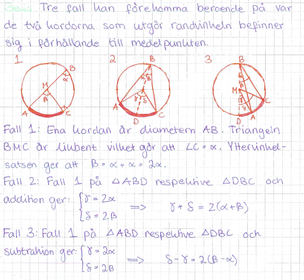 Tre fall kan förekomma beroende på var
de två kordorna som utgör randvinkeln befinner
sig i förhållande till medelpunkten.
1 2 3
B B B
α
M
β
A C
A C
D
A D C
Fall 1: Ena kordan är diametern AB. Triangeln
BMC är likbent vilket gör att ∠C = α. Yttervinkel-
satsen ger att β = α + α = 2α.
Fall 2: Fall 1 på △ABD respektive △DBC och
addition ger: { γ = 2α
δ = 2β ⟹ γ + δ = 2(α+β)
Fall 3: Fall 1 på △ABD respektive △DBC och
subtraktion ger: { γ = 2α
δ = 2β ⟹ δ - γ = 2(β-α)